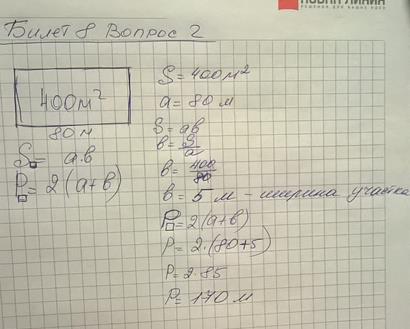 НОВАЯ ЛИНИЯ
Билет 8 Вопрос 2
400м²
80м
S▭ = a.в
P▭ = 2(a+в)
S = 400м²
a = 80 м
S = aв
в = S/a
в = 400/80
в = 5 м - ширина участка
P▭ = 2.(a+в)
P = 2.(80+5)
P = 2.85
P = 170 м